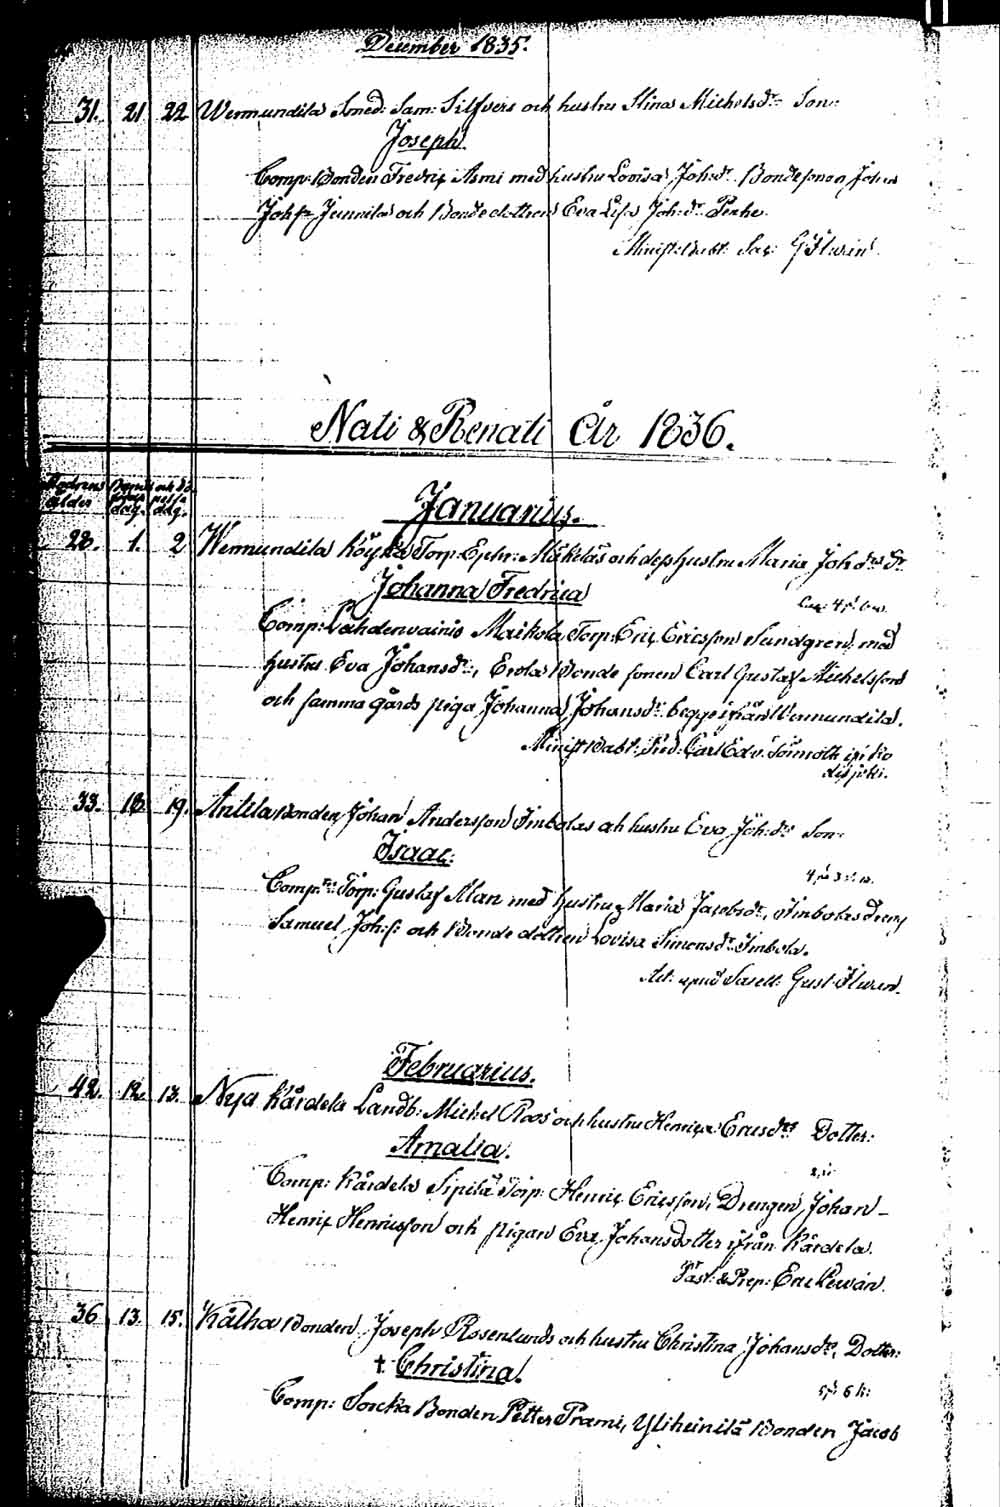 December 1835.
31. 21 22 Wermundila Smed: Sam: Silfvers och hustru Stina Michelsdr: Son:
Joseph.
Comp: Bonden Fredric Asmi med hustru Lovisa Joh:dr Bondesonen Johan
Johs: Junnila och Bondedottren Eva Lisa Joh:dr Penhe.
Minist: Babt: Sac: G. Ilwan.
Nati & Renati År 1836.
Modrens ålder
dag. dag.
Januarius.
28. 1. 2 Wermundila Köykä Torp: Ephr: Mökeläs och dess hustru Maria Joh:ds Dr
Johanna Fredrica
Comp: Lahdenvainio Maikola Torp: Eric Ericsson Sundgren med
hustru Eva Johansdr:, Erola Bonde sonen Carl Gustaf Michelsson
och samma gårds piga Johanna Johansdr: begge ifrån Wermundila.
Minist: Babt: Carl Edv:
33. 18. 19. Anttila Bonden Johan Andersson Imbolas och hustru Eva Joh:dr Son:
Isaac:
Comp: Torp: Gustaf Man med hustru Maria Jacobsdr:, Imbolas Dreng
Samuel Joh:s: och Bonde dottren Lovisa Simonsdr: Imbola.
Act: apud Sacell: Gust: Ilwan.
Februarius.
42. 12. 13. Nya Kårdela Landb: Michel Roos och hustru Henrica Ericsdr: Dotter:
Amalia.
Comp: Kårdela Sipilä Torp: Henric Ericsson, Drengen Johan-
Henric Henricsson och pigan Eva Johansdotter ifrån Kårdela.
Past: & Prep: Eric Lewán.
36 13. 15. Kålha Bonden Joseph Rosenlunds och hustru Christina Johansdr:, Dotter:
† Christina.
Comp: Sorcka Bonden Petter Prami, Yliheinilä Bonden Jacob